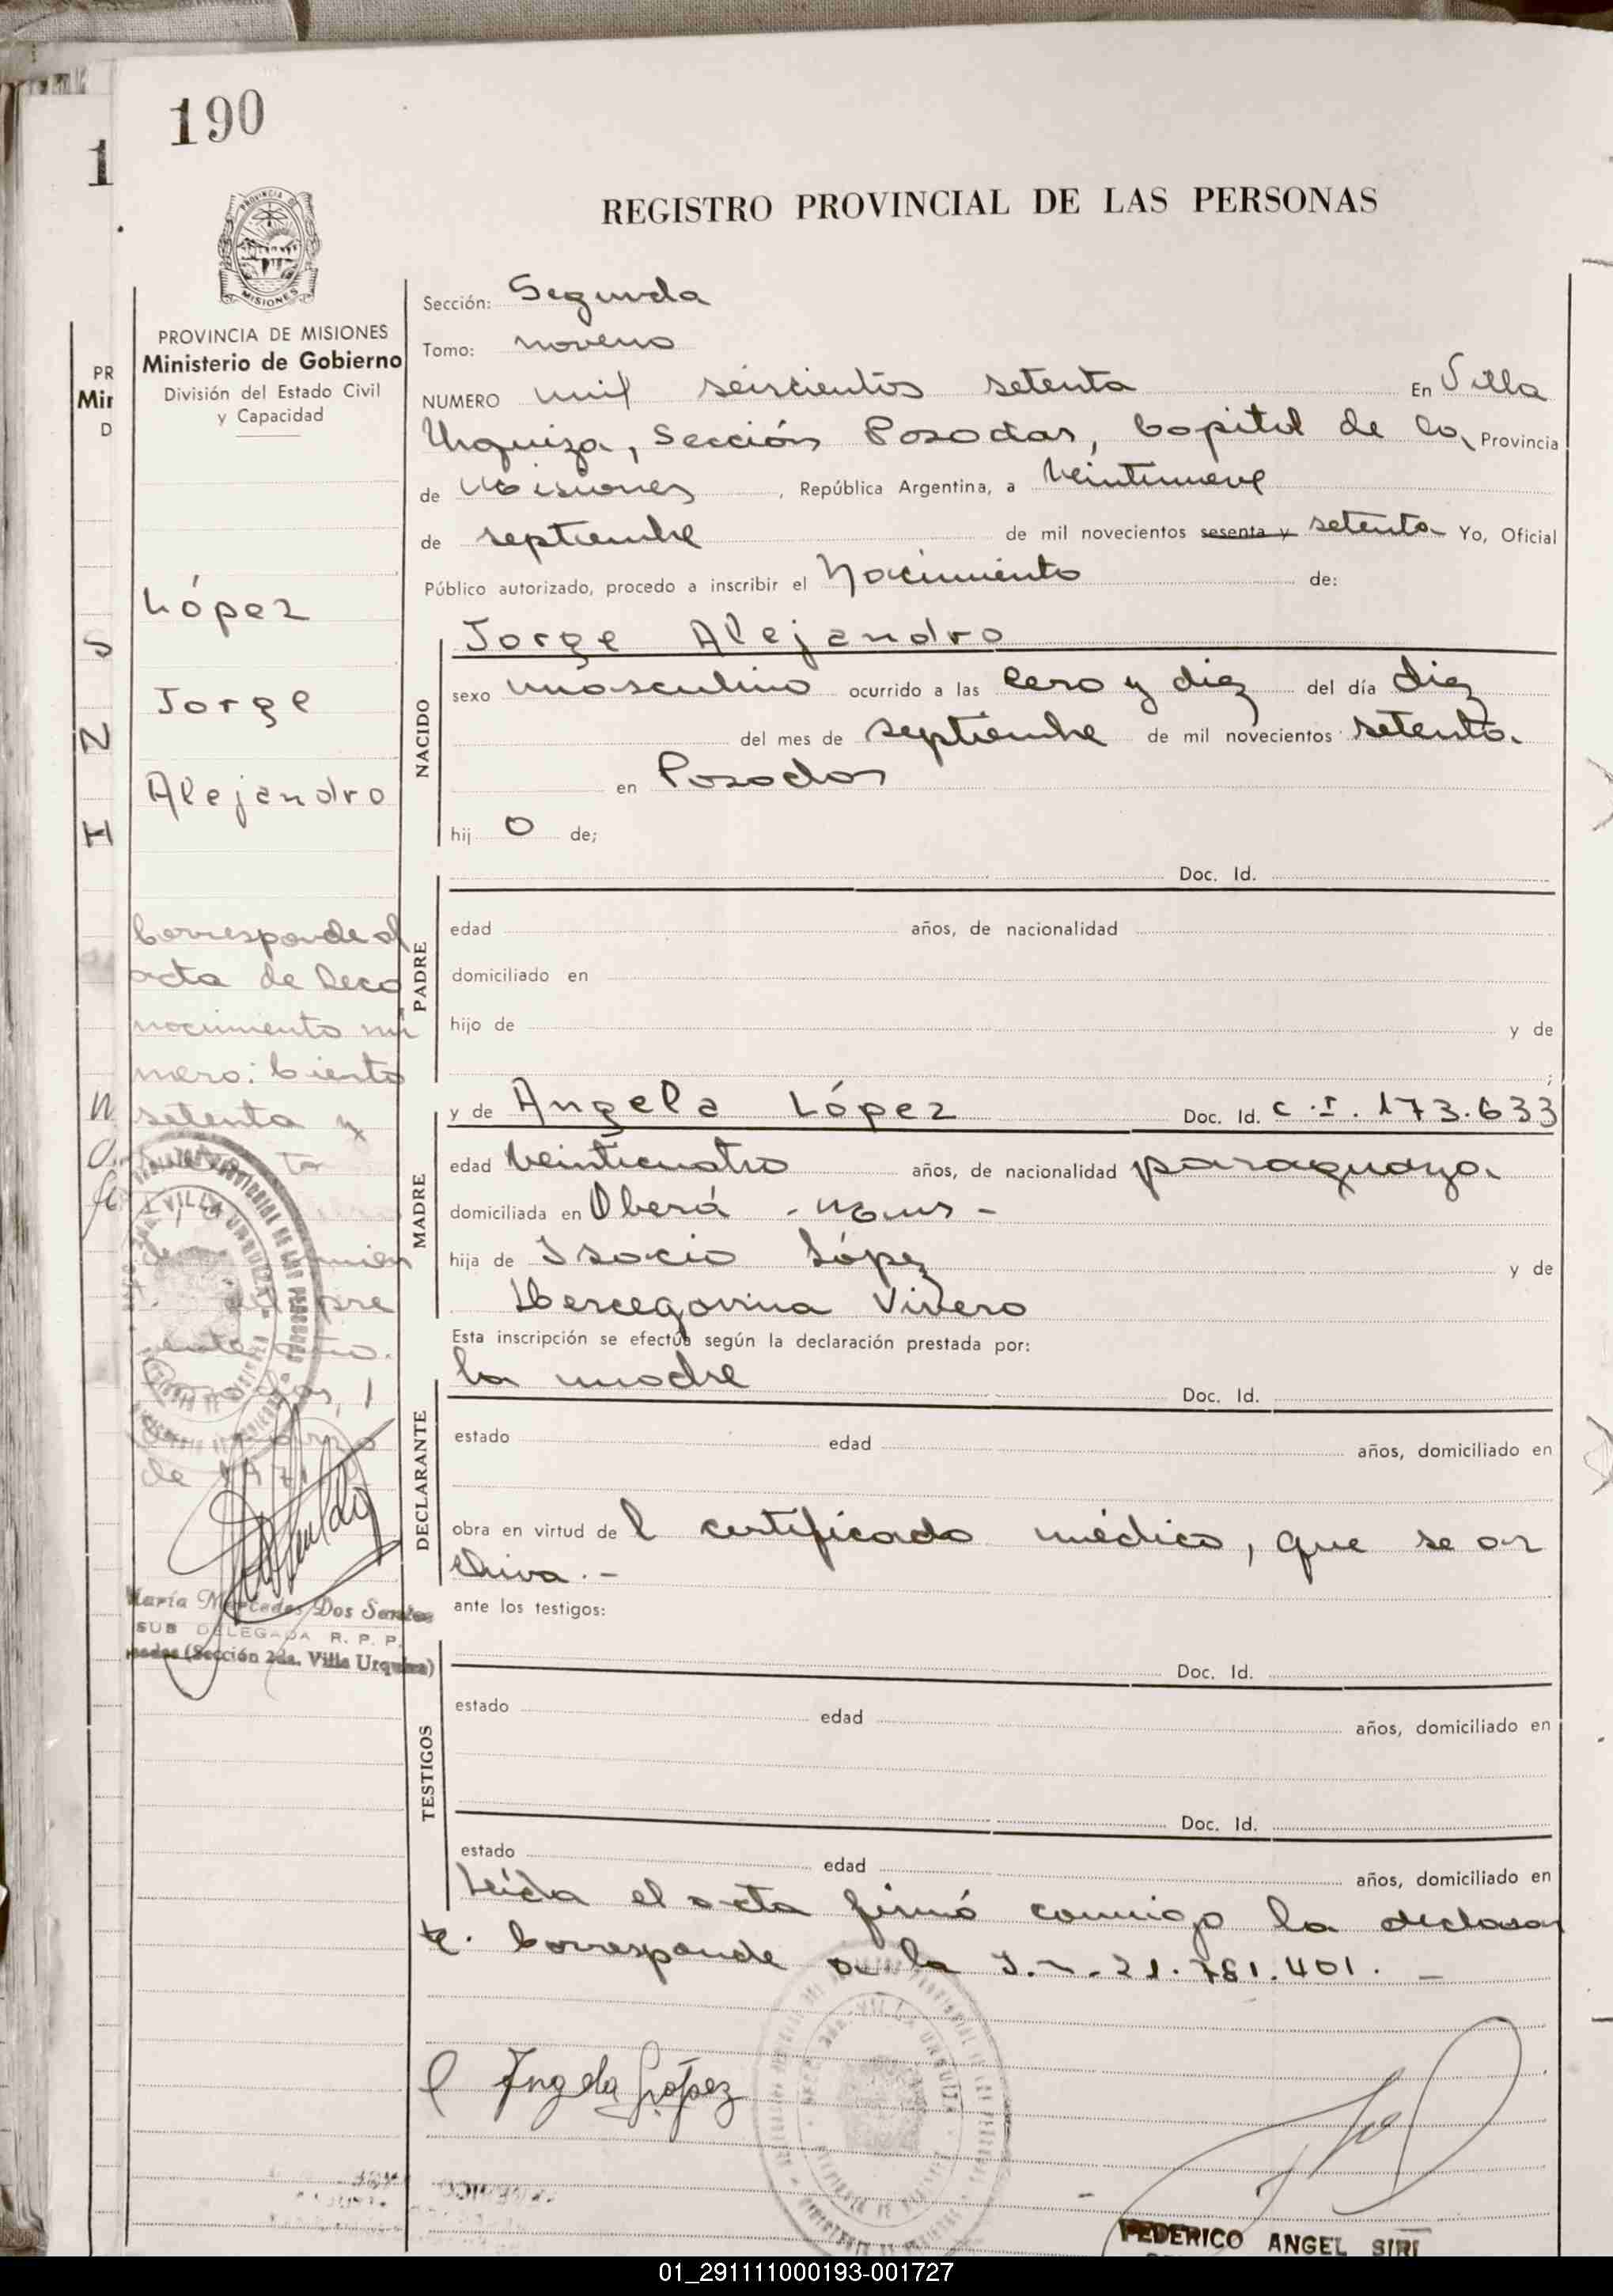 190
1
REGISTRO PROVINCIAL DE LAS PERSONAS
MISIONES
PROVINCIA DE MISIONES
Ministerio de Gobierno
División del Estado Civil
y Capacidad
PR
Mir
D
López
Jorge
Alejandro
S
N
I
Corresponde al
acta de Reco
nocimiento nú
mero: Ciento
setenta y
pre
de 1971
María Mercedes Dos Santos
SUB DELEGADA R. P. P.
(Sección 2da. Villa Urquiza)
Sección: Segunda
Tomo: noveno
NUMERO mil seiscientos setenta En Villa
Urquiza, Sección Posadas, Capital de la Provincia
de Misiones, República Argentina, a veintinueve
de septiembre de mil novecientos sesenta y setenta Yo, Oficial
Público autorizado, procedo a inscribir el Nacimiento de:
NACIDO
Jorge Alejandro
sexo masculino ocurrido a las cero y diez del día diez
del mes de septiembre de mil novecientos setenta.
en Posadas
hij o de;
PADRE
Doc. Id.
edad años, de nacionalidad
domiciliado en
hijo de y de
;
MADRE
y de Angela López Doc. Id. C.I. 173.633
edad veinticuatro años, de nacionalidad paraguaya
domiciliada en Oberá - Mnes -
hija de Isacio López y de
Hercegovina Vivero
Esta inscripción se efectúa según la declaración prestada por:
DECLARANTE
la madre Doc. Id.
estado edad años, domiciliado en
obra en virtud de l certificado médico, que se ar
chiva.-
ante los testigos:
TESTIGOS
Doc. Id.
estado edad años, domiciliado en
Doc. Id.
estado edad años, domiciliado en
Leída el acta firmó conmigo la declaran
te. Corresponde a la 21.781.401. -
Angela López
FEDERICO ANGEL SIRI
01_291111000193-001727